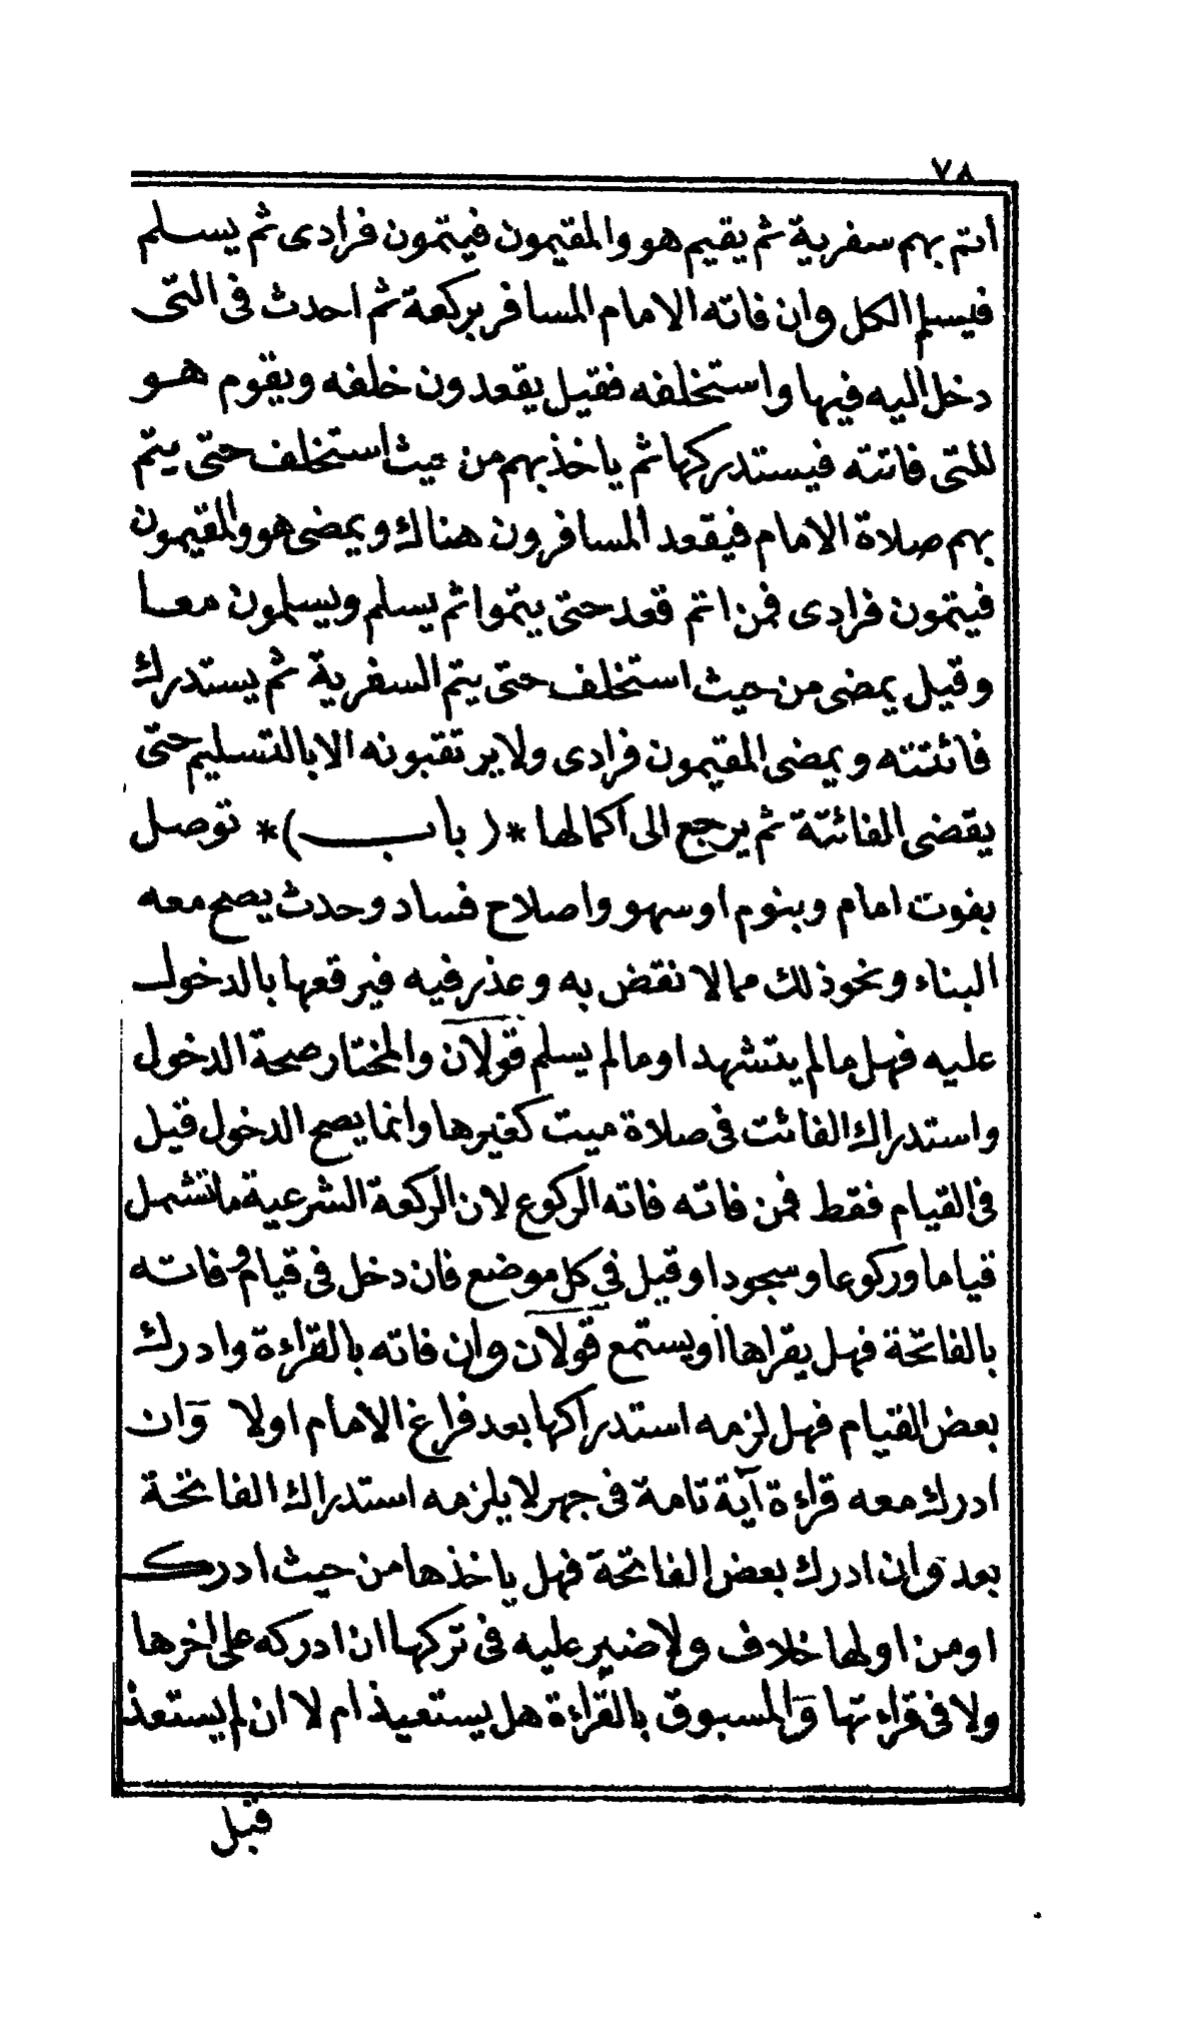 ٧٨
أتم بهم سفرية ثم يقيم هو والمقيمون فيتمون فرادى ثم يسلم
فيسلم الكل وان فاته الامام المسافر بركعة ثم احدث فى التى
دخل اليه فيها واستخلفه فقيل يقعدون خلفه ويقوم هو
للتى فاتته فيستدركها ثم ياخذ بهم من حيث استخلف حتى يتم
بهم صلاة الامام فيقعد المسافرون هناك ويمضى هو والمقيمون
فيتمون فرادى فمن اتم قعد حتى يتموا ثم يسلم ويسلمون معا
وقيل يمضى من حيث استخلف حتى يتم السفرية ثم يستدرك
فائتته ويمضى المقيمون فرادى ولا يرتقبونه الا بالتسليم حتى
يقضى الفائتة ثم يرجع الى اكمالها *( باب )* توصل
بفوت امام وبنوم او سهو واصلاح فساد وحدث يصح معه
البناء ونحو ذلك مما لا نقض به وعذر فيه فيرقعها بالدخول
عليه فهل ما لم يتشهد او ما لم يسلم قولان والمختار صحة الدخول
واستدراك الفائت فى صلاة ميت كغيرها وانما يصح الدخول قيل
فى القيام فقط فمن فاته فاته الركوع لان الركعة الشرعية ما تشمل
قياما وركوعا وسجودا وقيل فى كل موضع فان دخل فى قيام وفاته
بالفاتحة فهل يقراها أو يستمع قولان وان فاته بالقراءة وادرك
بعض القيام فهل لزمه استدراكها بعد فراغ الامام اولا وان
ادرك معه قراءة آية تامة فى جهر لا يلزمه استدراك الفاتحة
بعد وان ادرك بعض الفاتحة فهل ياخذها من حيث ادرك
او من اولها خلاف ولا ضير عليه فى تركها ان ادركه على اخرها
ولا فى قراءتها والمسبوق بالقراءة هل يستعيذ أم لا ان لم يستعذ
قبل